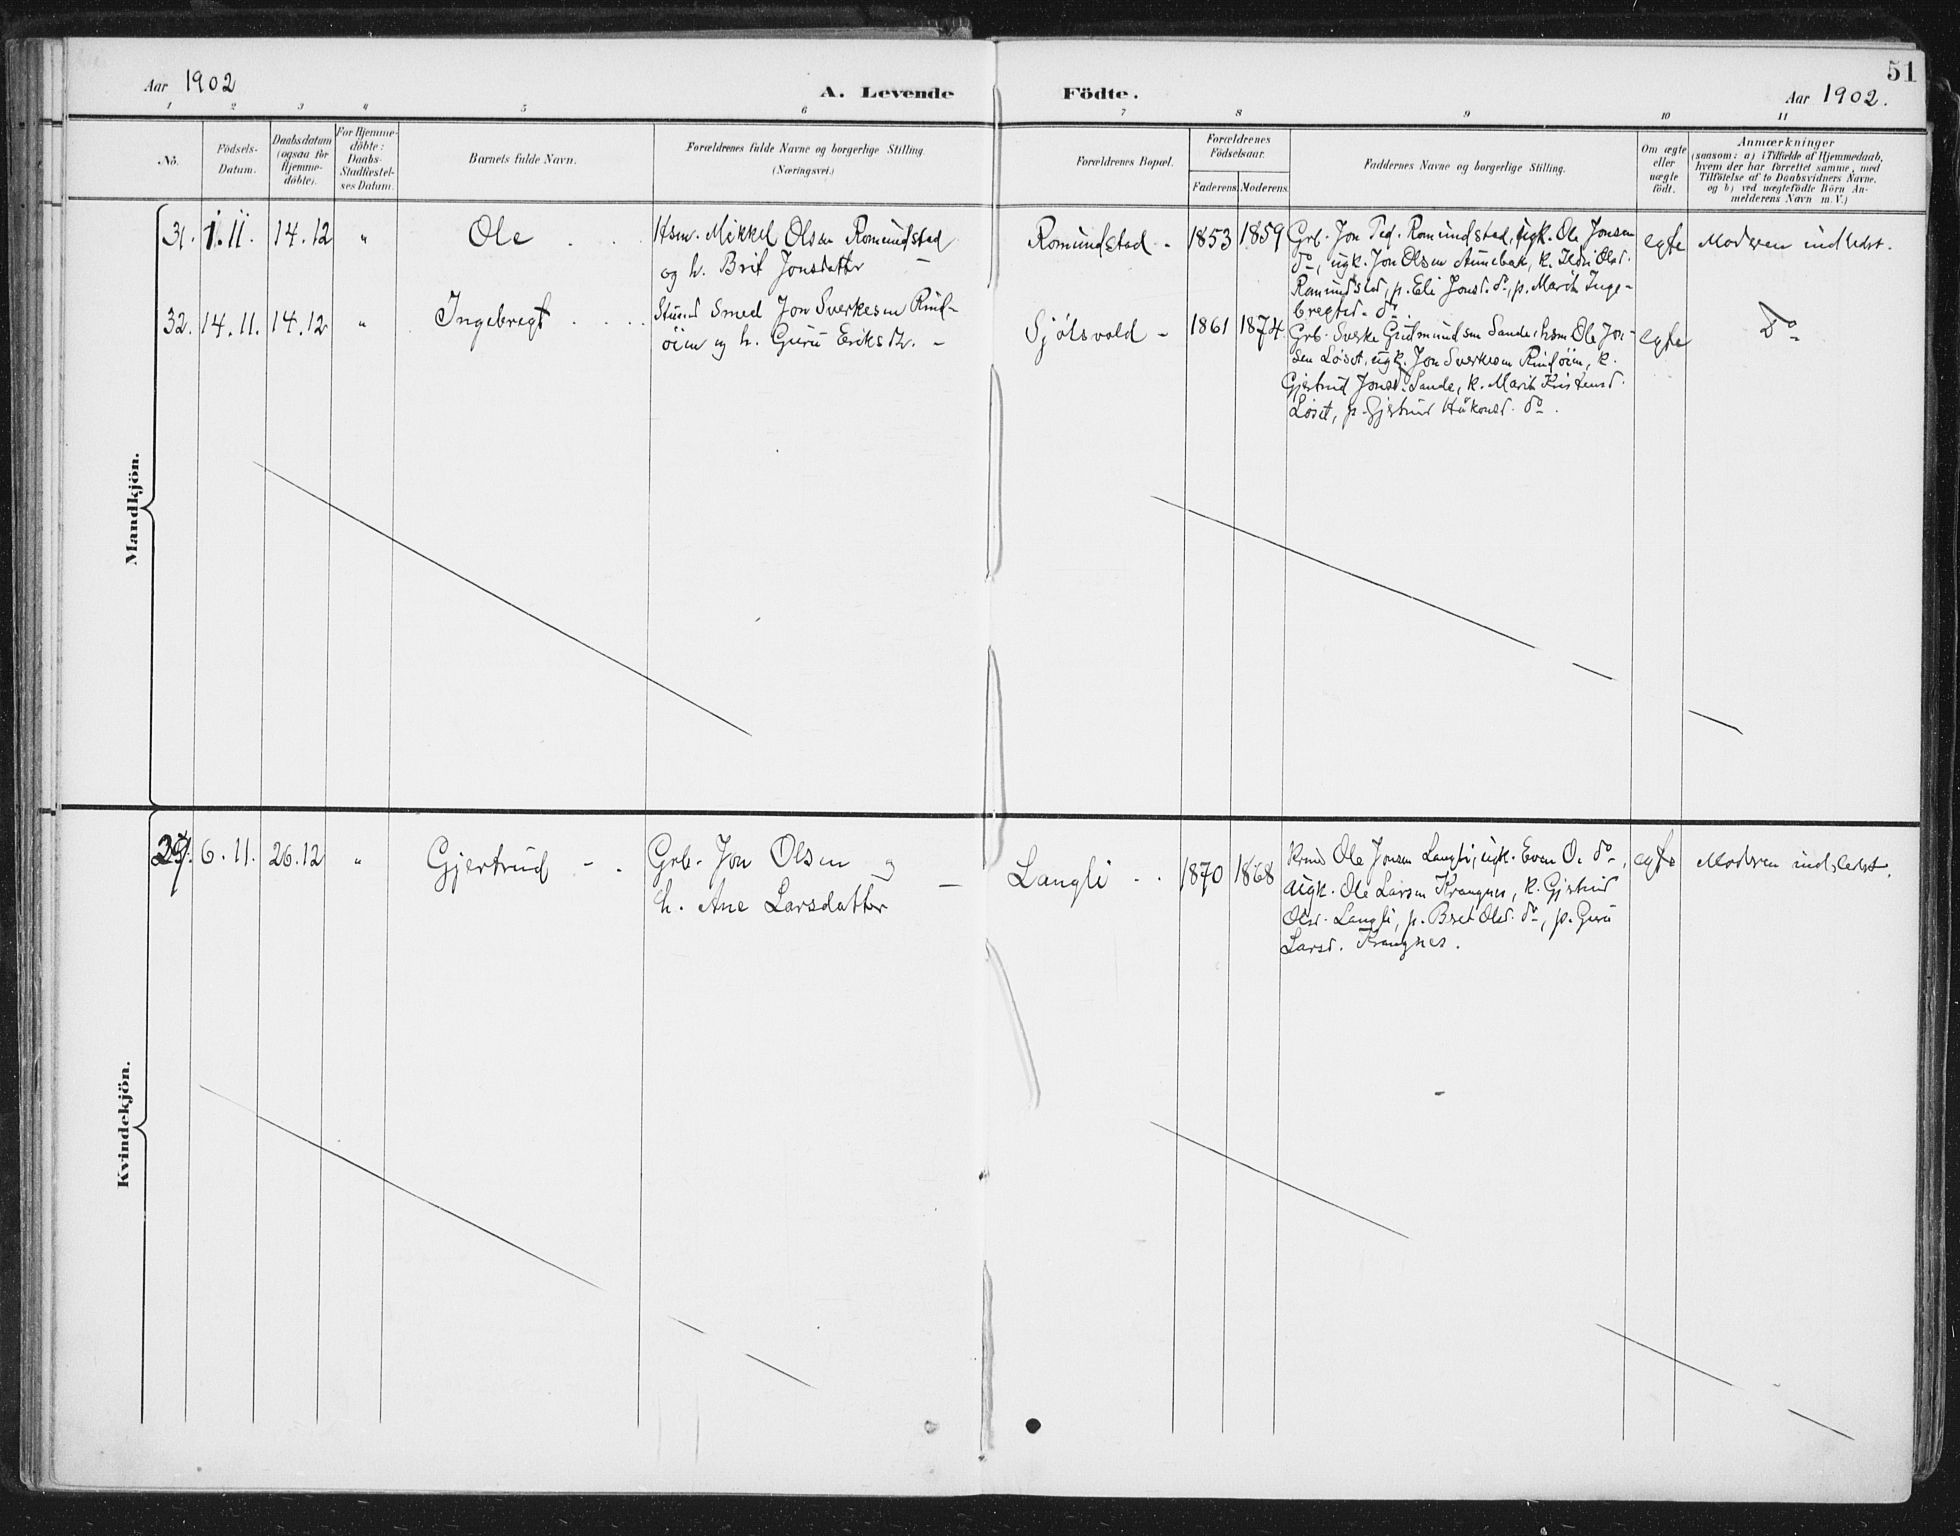 51
Aar 1902
A. Levende Födte.
Aar 1902.
1 2 3 4 5 6 7 8 9 10 11
No.
Födsels-
Datum.
Daabsdatum
(ogsaa for
Hjemme-
döbte).
For Hjemme-
döbte:
Daabs-
Stadfæstel-
ses Datum.
Barnets fulde Navn.
Forældrenes fulde Navne og borgerlige Stilling
(Næringsvei.)
Forældrenes Bopæl.
Forældrenes
Födselsaar.
Faderens. Moderens.
Faddernes Navne og borgerlige Stilling.
Om ægte
eller
uægte
födt.
Anmærkninger
(saasom: a) i Tilfælde af Hjemmedaab,
hvem der har forrettet samme, med
Tilföielse af to Daabsvidners Navne.
og b) ved uægtefödte Börn An-
melderens Navn m. V.)
Mandkjön.
31. 1.11. 14.12 " Ole
Hsm. Mikkel Olsen Romundstad
og h. Brit Jonsdatter –
Romundstad - 1853 1859
Grb. Jon Ped. Romundstad, ugk. Ole Jonsen
do, ugk. Jon Olsen Aunebak, k. Ildri Olsd.
Romundstad, p. Eli Jonsd. do, p. Marit Inge-
bregtsd. do.
egte Moderen indledet.
32. 14.11. 14.12 " Ingebregt
Smed Jon Sverkesen Rind-
öien og h. Guru Eriksdtr. –
Sjölsvold - 1861 1874.
Grb. Sverke Gudmundsen Sande, hsm Ole Jon-
sen Löset, ugk. Jon Sverkesen Rindöien, k.
Gjertrud Jonsd. Sande, k. Marit Kristensd.
Löset, p. Gjertrud Håkonsd. do.
egte do
Kvindekjön.
6.11. 26.12 " Gjertrud -
Grb. Jon Olsen og
h. Ane Larsdatter –
Langli - - 1870 1868
Ole Jonsen Langli, ugk. Even O. do,
ugk. Ole Larsen Krangnes, k. Gjertrud
Olsd. Langli, p. Bret Olsd. do, p. Guru
Larsd. Krangnes.
egte Moderen indledet.